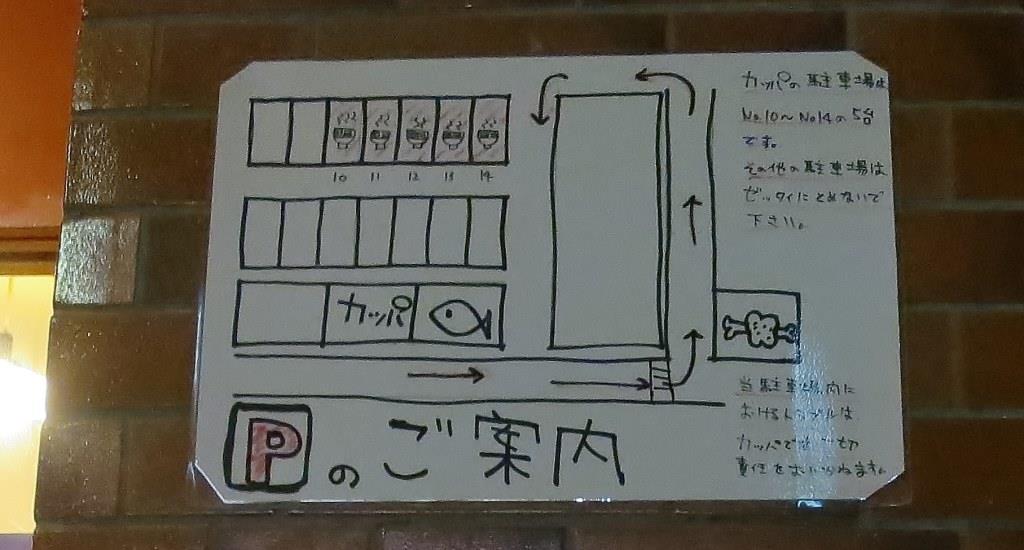 カッパの駐車場は
No.10～No14の5台
です。
その他の駐車場は
ゼッタイにとめないで
下さい。
10 11 12 13 14
カッパ
当駐車場内に
おけるトラブルは
カッパでは 切
責任をおいかねます。
Pのご案内